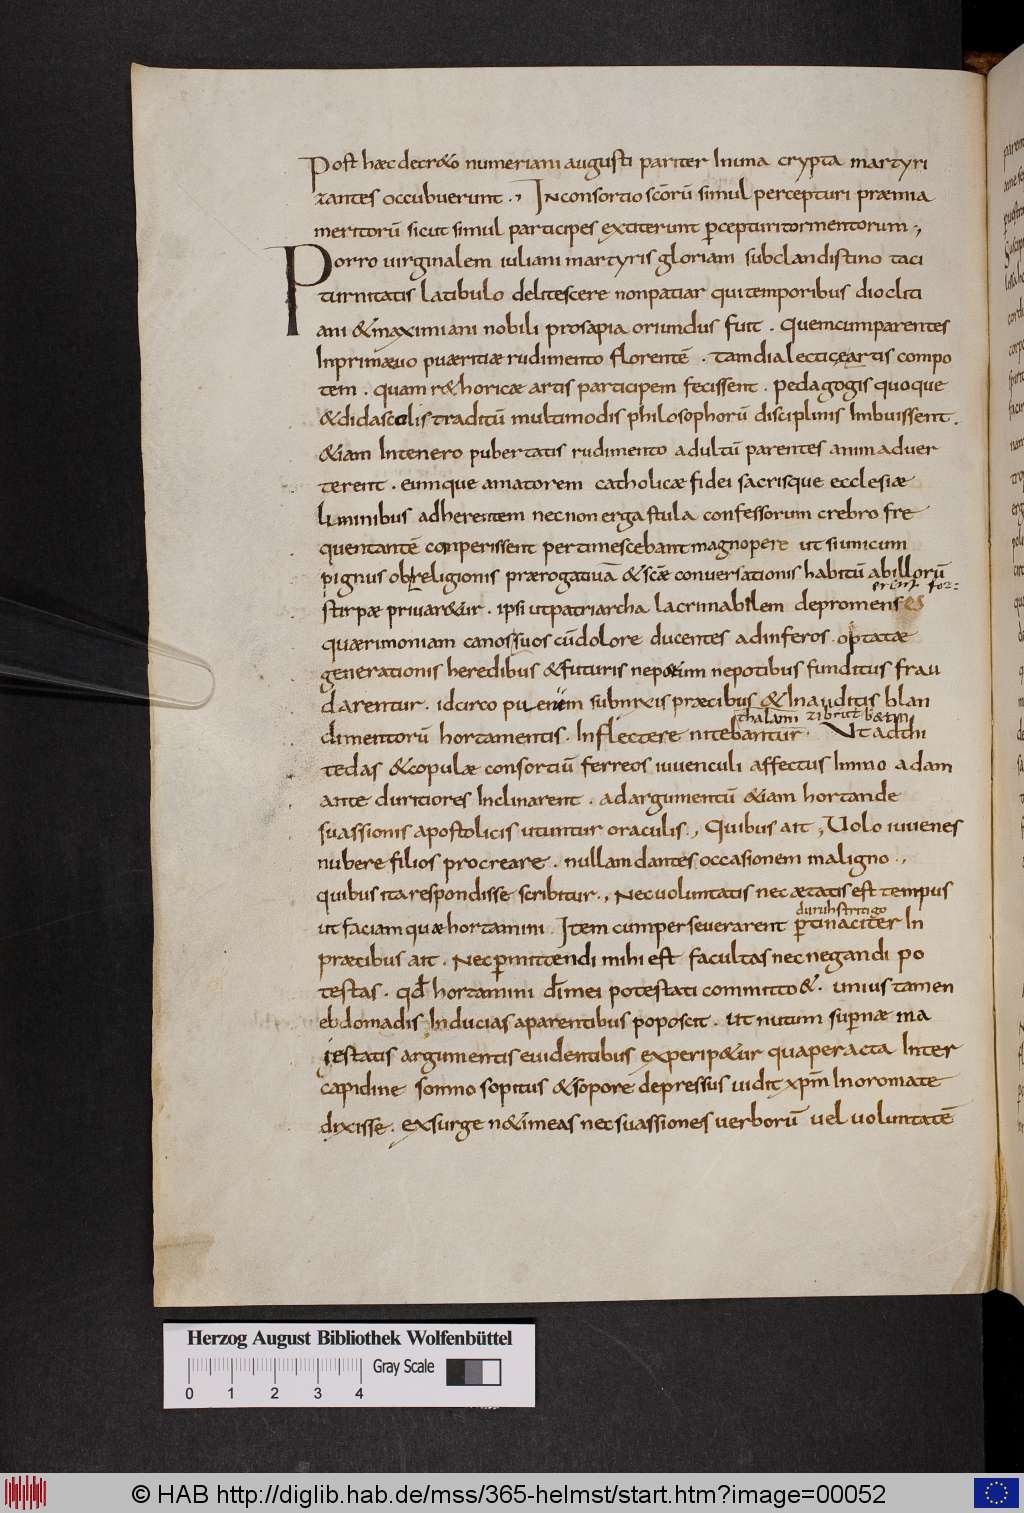 Post hæc decr&o numeriani augusti pariter In una crypta martyri
zantes occubuerunt ., In consortio scōrū simul percepturi præmia
meritorū sicut simul participes extiterunt p̄cepturi tormentorum.,
Porro uirginalem iuliani martyris gloriam subclandistino taci
turnitatis latibulo delitescere non patiar qui temporibus diocliti
ani & maximiani nobili prosapia oriundus fuit . Quem cum parentes
In primæuo puæritiæ rudimento florentē . tam dialecticę artis compo
tem . quam r&horicæ artis participem fecissent . pedagogis quoque
& didascalis traditū multimodis philosophorū disciplinis Imbuissent .
&iam In tenero pubertatis rudimento adultū parentes animaduer
terent . eumque amatorem catholicæ fidei sacrisque ecclesiæ
liminibus adherentem nec non ergastula confessorum crebro fre
quentantē conperissent pertimescebant magnopere ut si unicum
pignus ob religionis prærogatiuā & scæ conuersationis habitū ab illorū
erent for:
stirpæ priuar&ur . ipsi ut patriarcha lacrimabilem depromenses
quærimoniam canos suos cū dolore ducentes ad inferos . optatæ
generationis heredibus & futuris nepotum nepotibus funditus frau
darentur . idcirco puerum subnixis præcibus & Inauditis blan
thalam̄ zi brut b&tin
dimentorū hortamentis . Inflectere nitebantur . Ut ad thi
tedas & copulæ consortiū ferreos iuuenculi affectus Immo adam
ante duritiores Inclinarent . ad argumentū &iam hortande
suassionis apostolicis utuntur oraculis ., Quibus ait , Uolo iuuenes
nubere filios procreare . nullam dantes occasionem maligno .,
quibus ita respondisse scribitur ., Nec uoluntatis nec ætatis est tempus
duruhstritigo
ut faciam quæ hortamini . Item cum perseuerarent p̄tinaciter In
præcibus ait . Nec p̄mittendi mihi est facultas nec negandi po
testas . qđ hortamini dī mei potestati committo &. unius tamen
ebdomadis Inducias a parentibus poposcit . ut nutum sup̄næ ma
iestatis argumentis euidentibus experir&ur qua peracta Inter
capidine somno sopitus & sopore depressus uidit xp̄m In oromate
dixisse . exsurge n&imeas nec suassiones uerborū uel uoluntatē
Herzog August Bibliothek Wolfenbüttel
Gray Scale
0 1 2 3 4
© HAB http://diglib.hab.de/mss/365-helmst/start.htm?image=00052